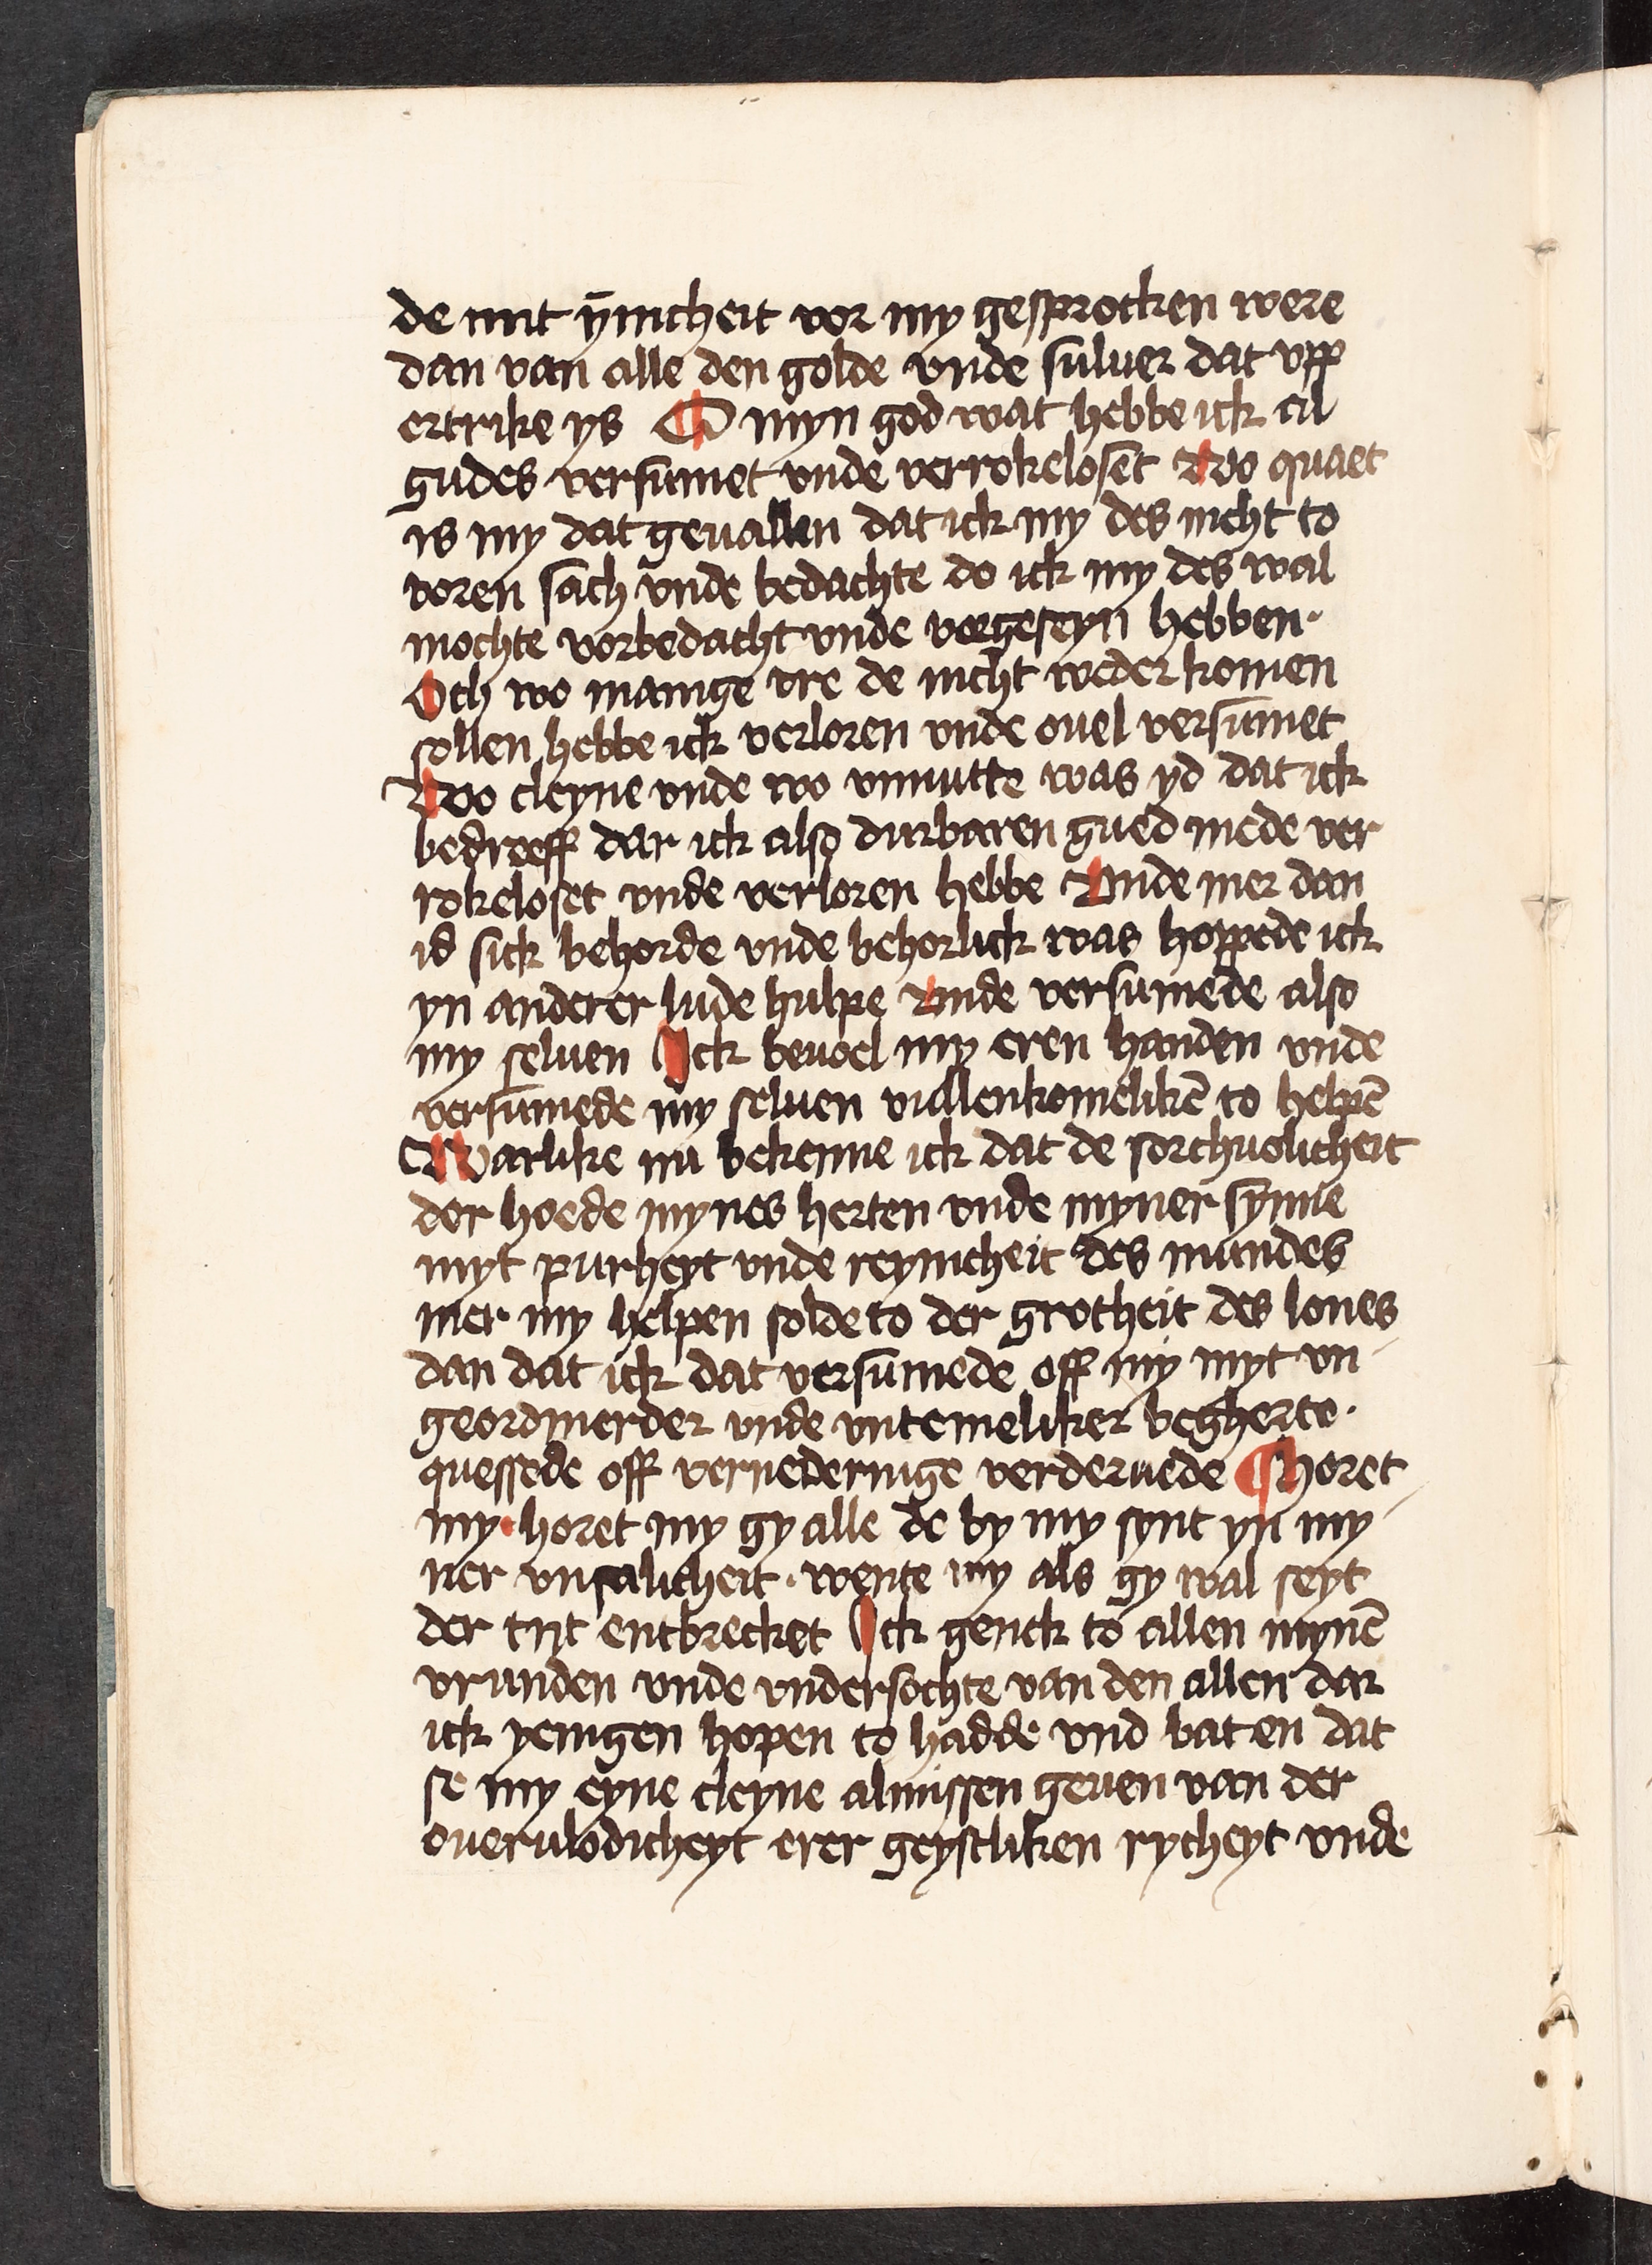 de mit ȳnicheit vor my gesprocken were
dan van alle den golde vnde suluer dat vpp
ertrike ys O myn god wat hebbe ick al
gudes versumet vnde verrokelosent Wo quaet
is my dat geuallen dat ick my des nicht to
voren sach vnde bedachte do ick my des wal
mochte vorbedacht vnde vorgeseyn hebben.
Och wo mannige vre de nicht weder komen
sollen hebbe ick verloren vnde ouel versumet
Wo cleyne vnde wo vnnutte was yd dat ick
bedreeff dar ick also durbaren gued mede ver
rokeloset vnde verloren hebbe Vnde mer dan
id sick behorde vnde behorlick was hoppede ick
yn anderer lude hulpe Vnde versumede also
my seluen Ick beuoel my eren handen vnde
versumede my seluen vullenkomelikē to helpē
Warlike nu bekenne ick dat de sorchuolicheit
der hoede mynes herten vnde myner synne
myt purheyt vnde reynicheit des mundes
mer my helpen solde to der grotheit des lones
dan dat ick dat versumede off my myt vn
geordinerder vnde vntemeliker begherte.
quessede off vernederinge verderuede ¶ Horet
my · horet my gy alle de by my synt yn my
ner vnsalicheit · wente my als gy wal seyt
der tijt entbrecket Ick genck to allen mynē
vrunden vnde vndersochte van den allen dar
ick yenigen hopen to hadde vnd bat en dat
se my eyne cleyne almissen geuen van der
ouerulodicheyt erer geystliken rycheyt vnde